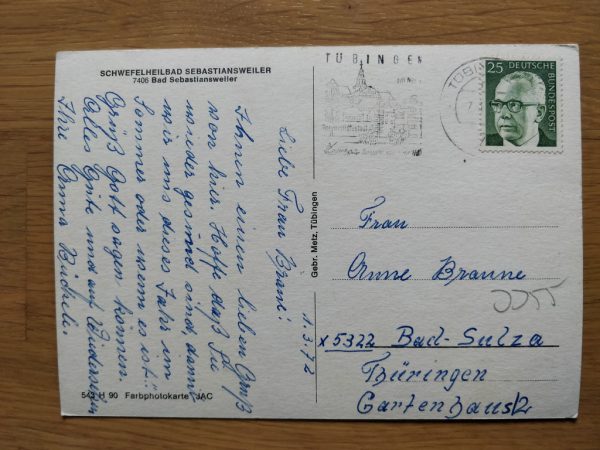 SCHWEFELHEILBAD SEBASTIANSWEILER
7406 Bad Sebastiansweiler
1.3.72
Liebe Frau Bräni!
Ihnen einen lieben Gruß
von hier. Hoffe daß Sie
wieder gesund sind damit
wir uns dieses Jahr im
Sommer oder wenn es ist
Grüß Gott sagen können.
Alles Gute und auf Wiedersehn
Ihre Emma
543 H 90 Farbphotokarte JAC
Gebr. Metz, Tübingen
TÜBINGEN
25 DEUTSCHE
BUNDESPOST
Frau
Anne Braune
x 5322 Bad-Sulza
Thüringen
Gartenhaus 2